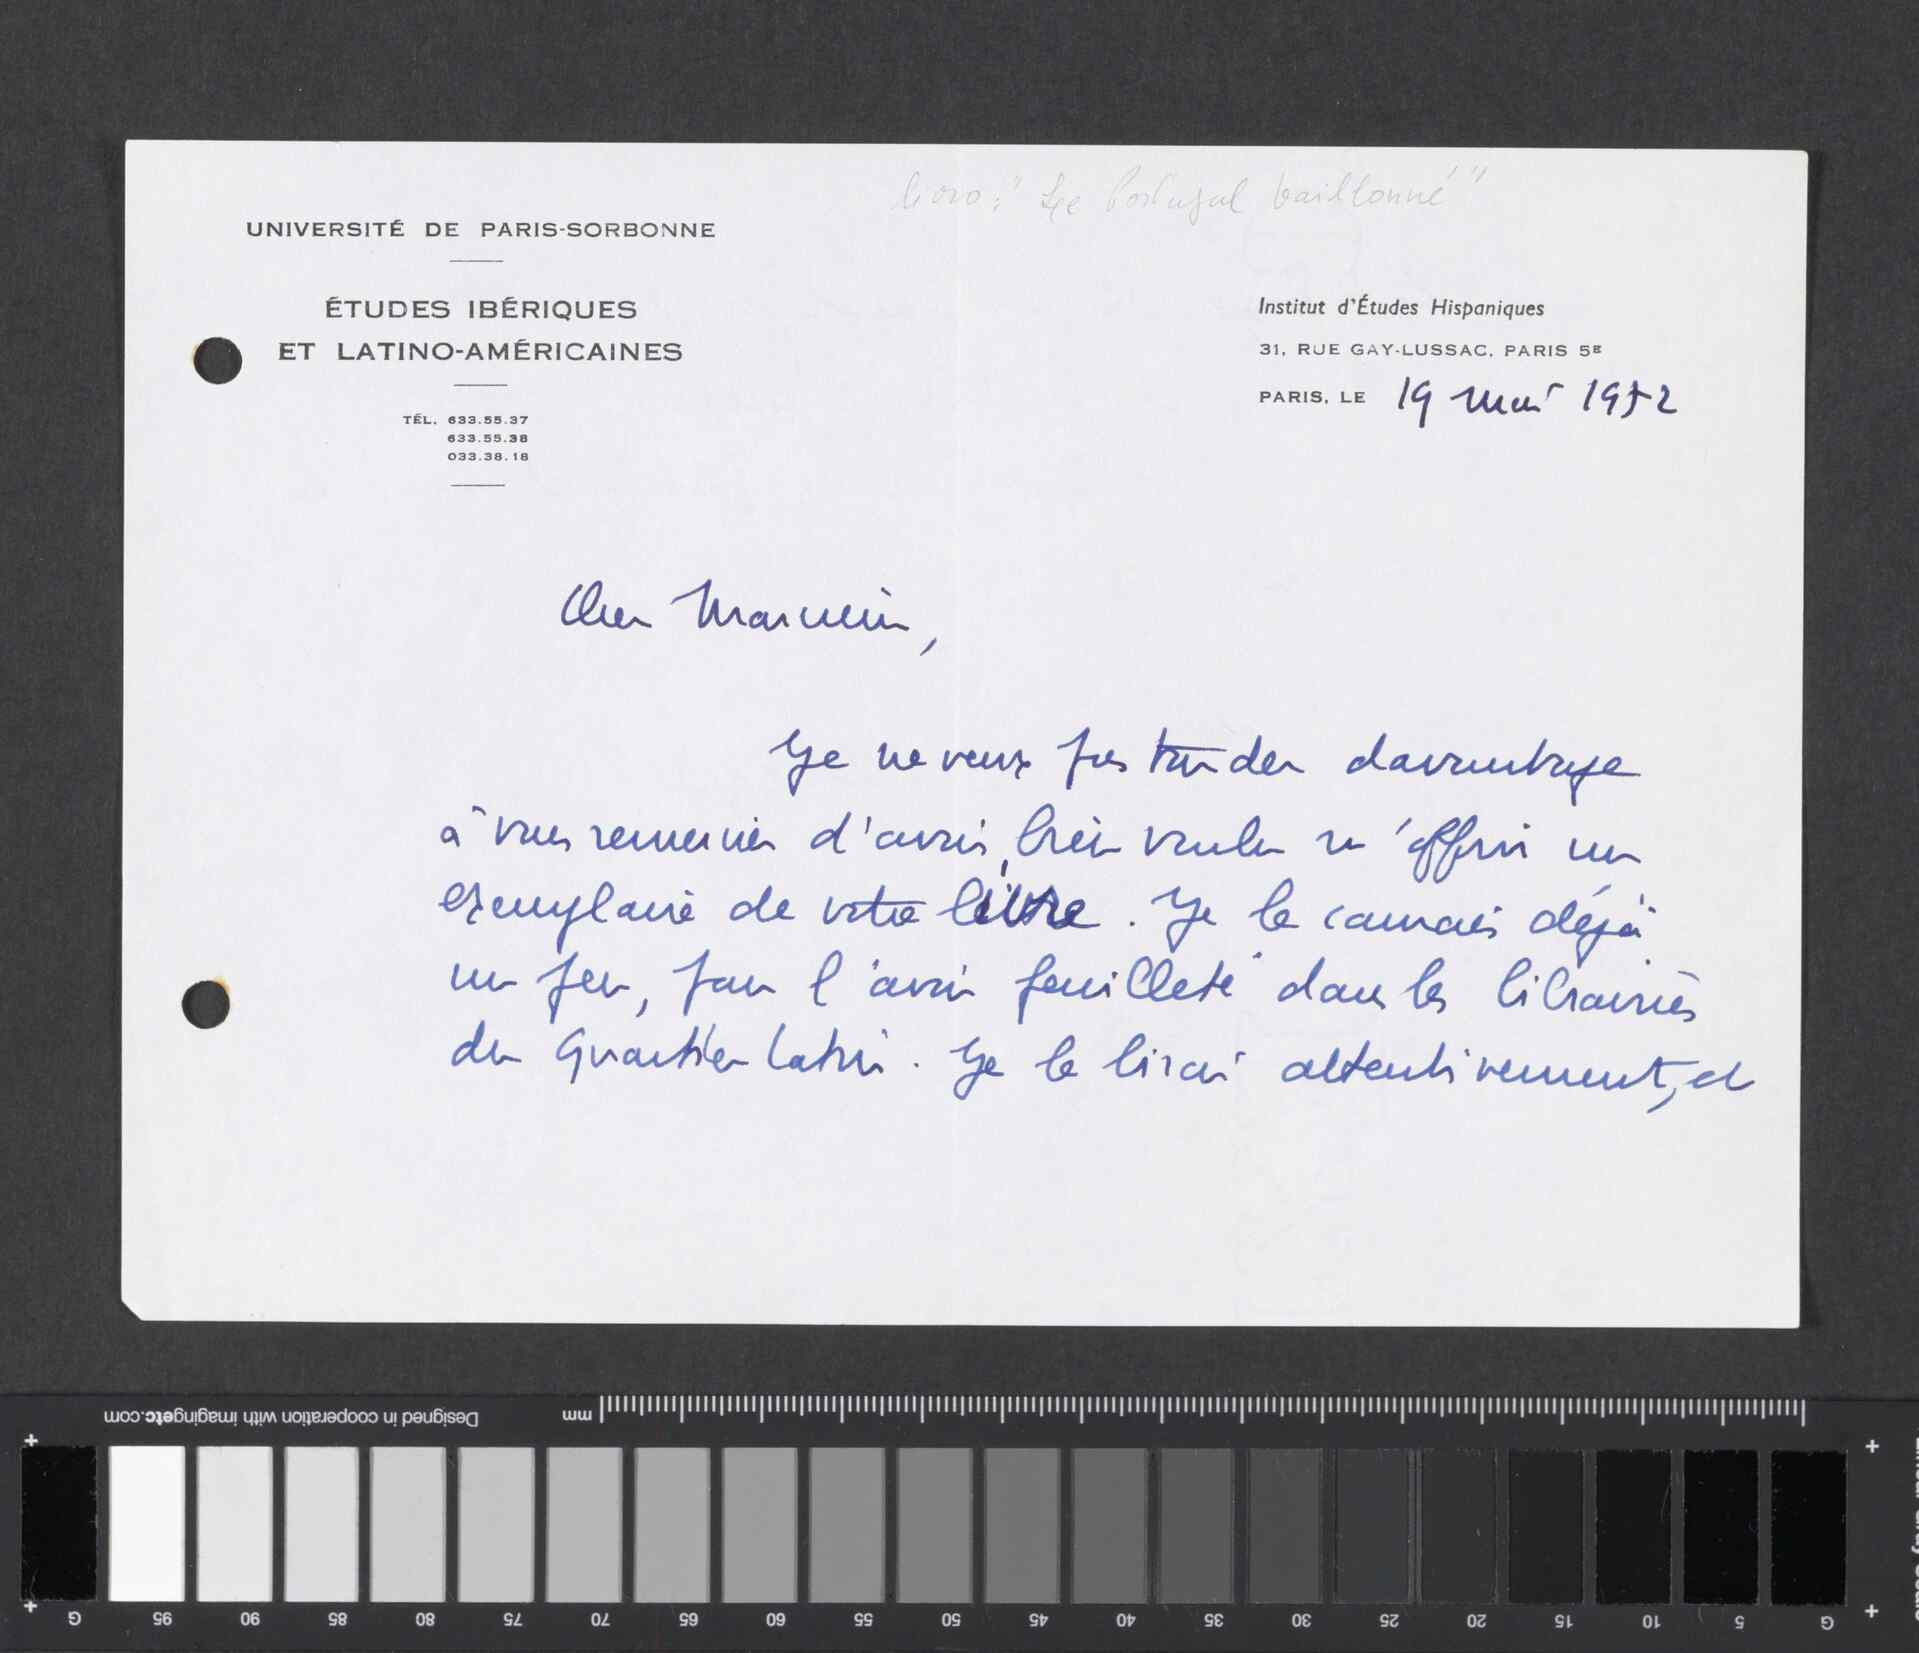 livro: "Le Portugal baillonné"
UNIVERSITÉ DE PARIS-SORBONNE
ÉTUDES IBÉRIQUES
ET LATINO-AMÉRICAINES
TÉL. 633.55.37
633.55.38
033.38.18
Institut d'Études Hispaniques
31, RUE GAY-LUSSAC, PARIS 5E
PARIS, LE 19 mai 1972
Cher Monsieur,
Je ne veux pas tarder davantage
à vous remercier d'avoir bien voulu m'offrir un
exemplaire de votre livre. Je le connais déjà
un peu, pour l'avoir feuilleté dans les librairies
du Quartier Latin. Je le lirai attentivement, et
Designed in cooperation with imagingetc.com
mm
G 95 90 85 80 75 70 65 60 55 50 45 40 35 30 25 20 15 10 5 G